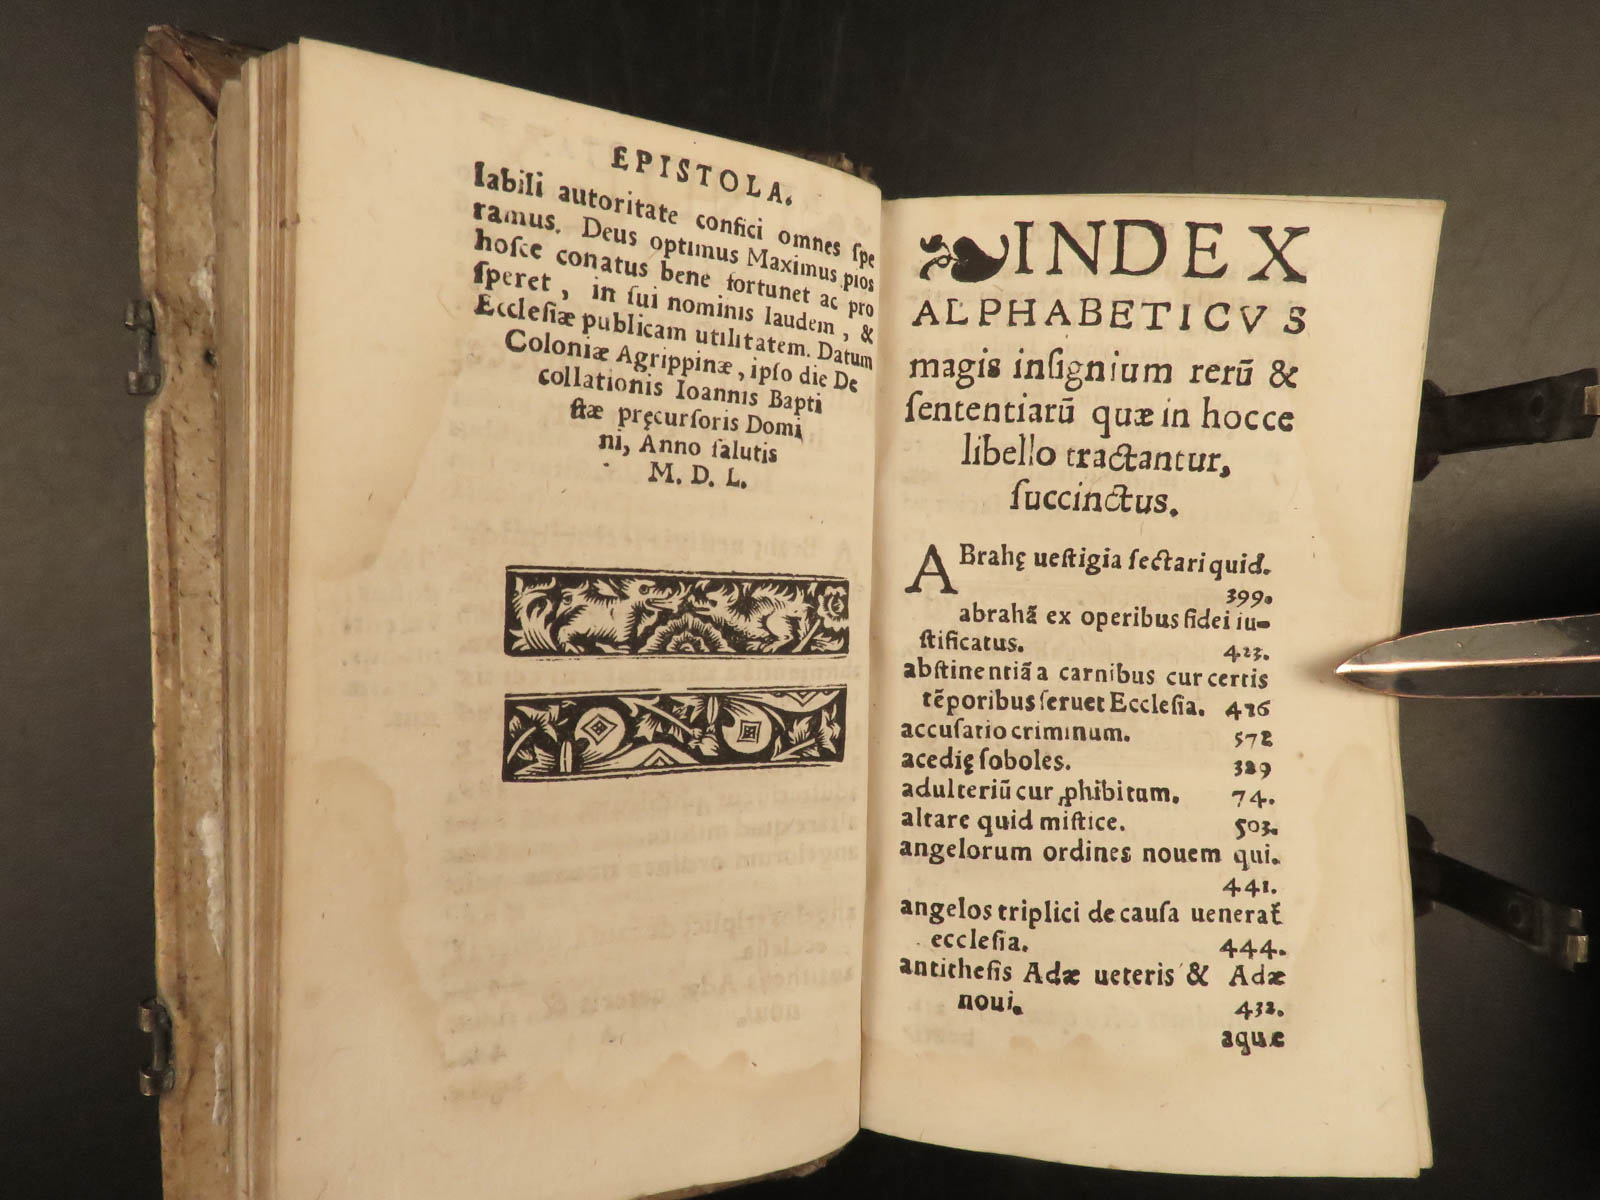 EPISTOLA.
labili autoritate confici omnes ſpe
ramus. Deus optimus Maximus pios
hoſce conatus bene fortunet ac pro
ſperet, in ſui nominis laudem, &
Eccleſiæ publicam utilitatem. Datum
Coloniæ Agrippinæ, ipſo die De
collationis Ioannis Bapti
ſtæ pręcurſoris Domi
ni, Anno ſalutis
M. D. L.
INDEX
ALPHABETICVS
magis inſignium rerū &
ſententiarū quæ in hocce
libello tractantur,
ſuccinctus.
ABrahę ueſtigia ſectari quid.
399.
abrahā ex operibus fidei iu-
ſtificatus. 423.
abſtinentiā a carnibus cur certis
tēporibus ſeruet Eccleſia. 426
accuſatio criminum. 572
acedię ſoboles. 389
adulteriū cur ꝓhibitum. 74.
altare quid miſtice. 503.
angelorum ordines nouem qui.
441.
angelos triplici de cauſa uenerat̄
eccleſia. 444.
antitheſis Adæ ueteris & Adæ
noui. 432.
aquæ